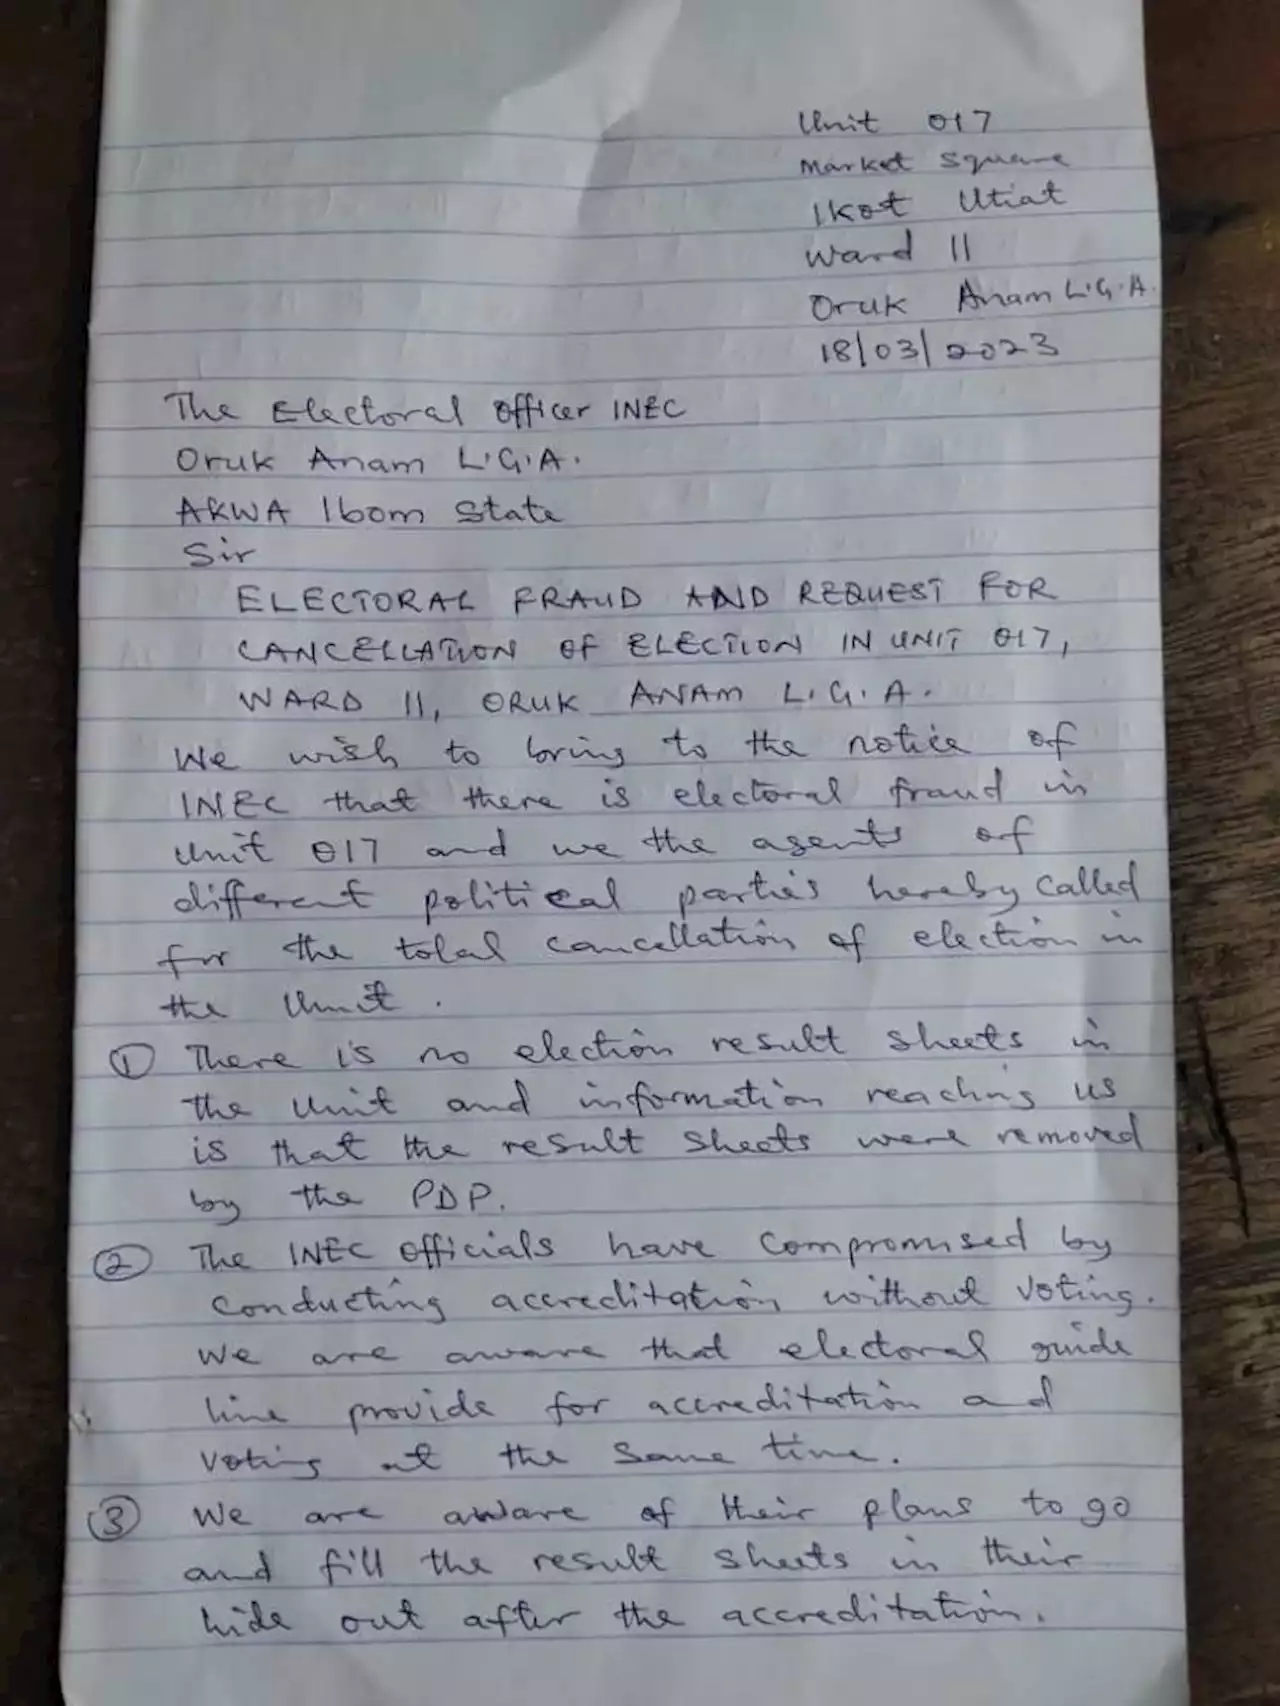 Unit 017
Market Square
Ikot Utiat
Ward 11
Oruk Anam L.G.A.
18/03/2023
The Electoral Officer INEC
Oruk Anam L.G.A.
AKWA Ibom State
Sir
ELECTORAL FRAUD AND REQUEST FOR
CANCELLATION OF ELECTION IN UNIT 017,
WARD 11, ORUK ANAM L.G.A.
We wish to bring to the notice of
INEC that there is electoral fraud in
Unit 017 and we the agents of
different political parties hereby called
for the total cancellation of election in
the Unit.
① There is no election result sheets in
the Unit and information reaching us
is that the result sheets were removed
by the PDP.
② The INEC officials have compromised by
conducting accreditation without voting.
We are aware that electoral guide
line provide for accreditation and
voting at the same time.
③ We are aware of their plans to go
and fill the result sheets in their
hide out after the accreditation.